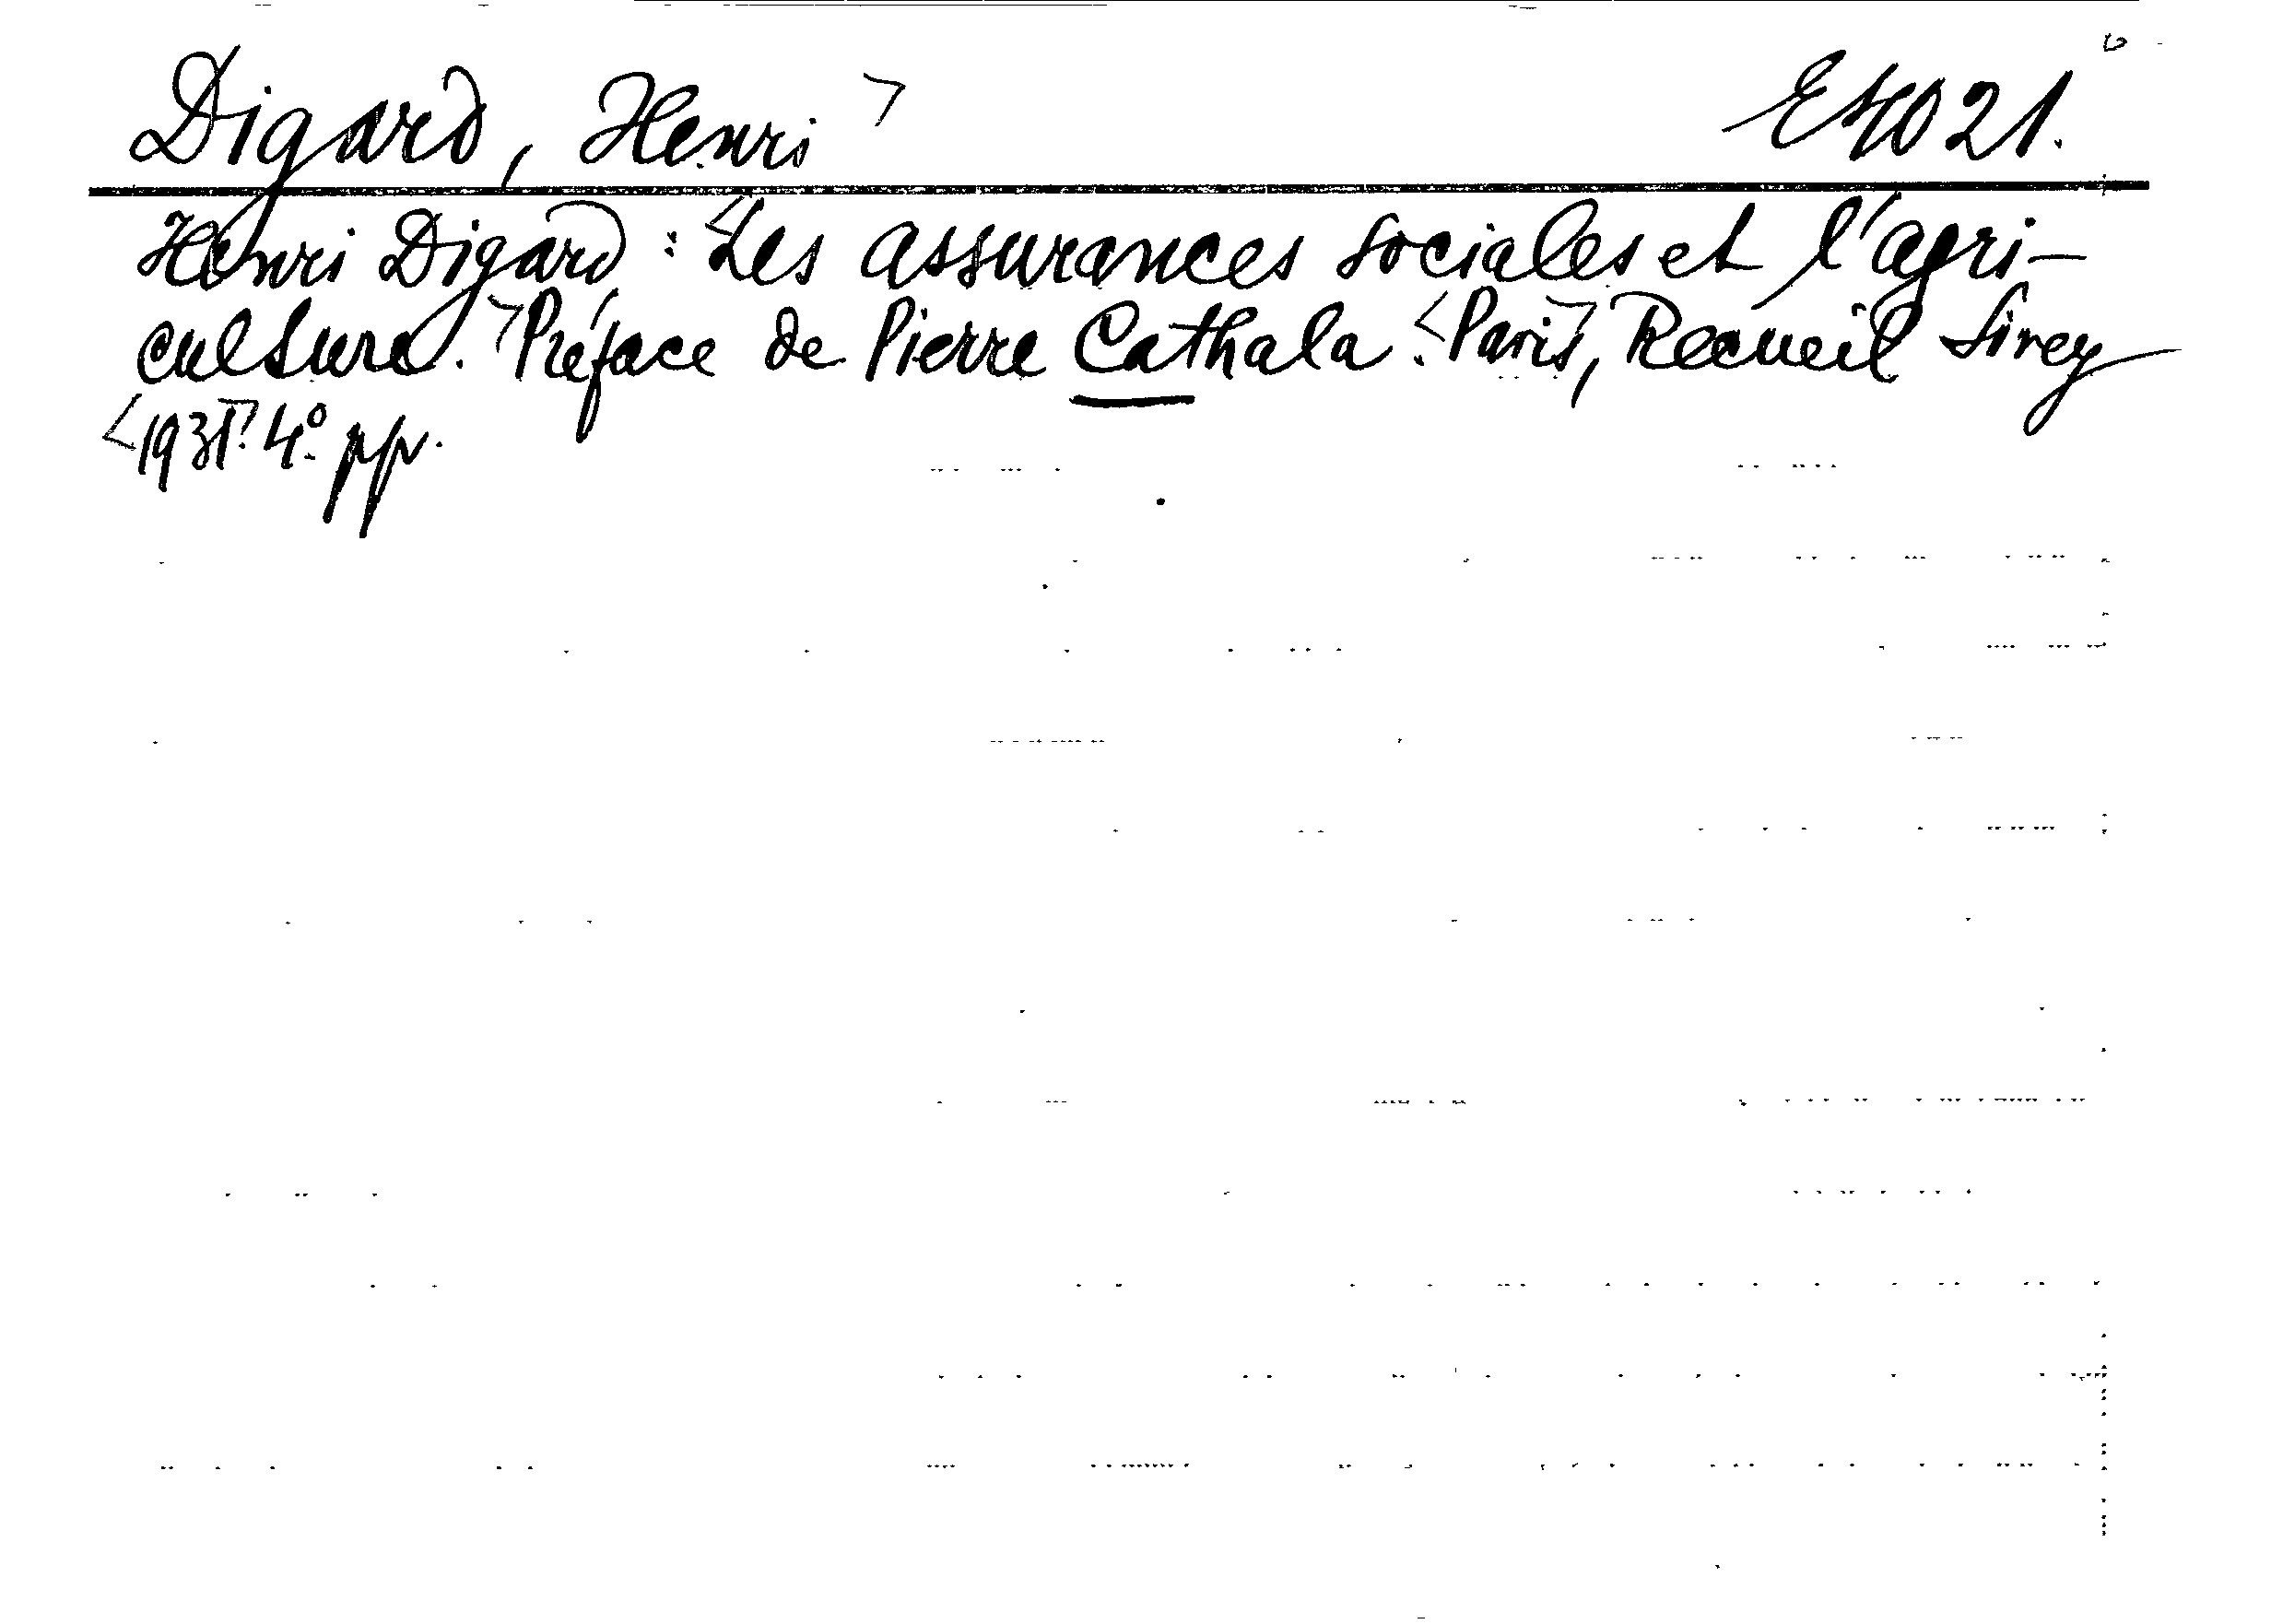 Digard, Henri ㄱ E4021.
Henri Digard: <Les assurances sociales et l'agri-
culture.> Préface de Pierre Cathala. <Paris>, Recueil Sirey
<1931>. 4° pp.